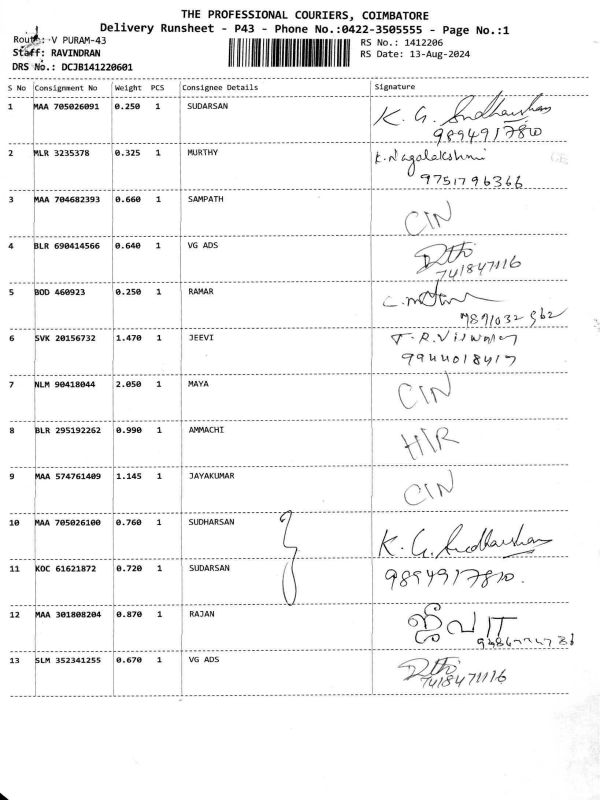 THE PROFESSIONAL COURIERS, COIMBATORE
Delivery Runsheet - P43 - Phone No.:0422-3505555 - Page No.:1
Route: -V PURAM-43
RS No.: 1412206
Staff: RAVINDRAN
RS Date: 13-Aug-2024
DRS No.: DCJB141220601
S No Consignment No Weight PCS Consignee Details Signature
1 MAA 705026091 0.250 1 SUDARSAN K. G. Sudharshan
9894917810
2 MLR 3235378 0.325 1 MURTHY K. Nagalakshmi
9751796366
3 MAA 704682393 0.660 1 SAMPATH CIN
4 BLR 690414566 0.640 1 VG ADS
7418471116
5 BOD 460923 0.250 1 RAMAR
6 SVK 20156732 1.470 1 JEEVI T.R.
9944018417
7 NLM 90418044 2.050 1 MAYA CIN
8 BLR 295192262 0.990 1 AMMACHI HIR
9 MAA 574761409 1.145 1 JAYAKUMAR CIN
10 MAA 705026100 0.760 1 SUDHARSAN K. G. Sudharshan
11 KOC 61621872 0.720 1 SUDARSAN 9894917810.
12 MAA 301808204 0.870 1 RAJAN ஜீவா
13 SLM 352341255 0.670 1 VG ADS
7418471116